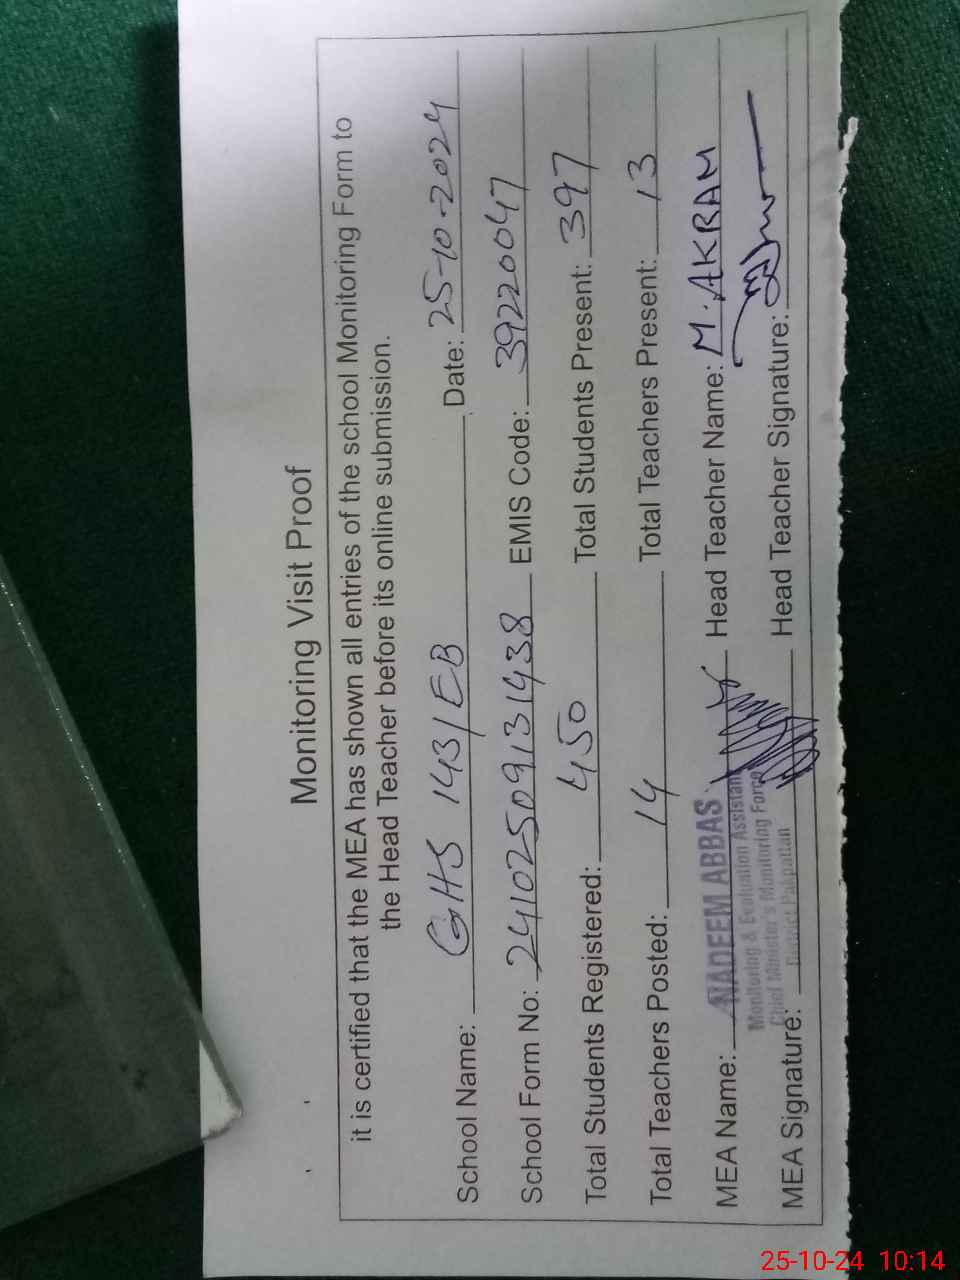 Monitoring Visit Proof
it is certified that the MEA has shown all entries of the school Monitoring Form to
the Head Teacher before its online submission.
School Name: GHS 143/EB Date: 25-10-2024
School Form No: 24102509131438 EMIS Code: 39220047
Total Students Registered: 450 Total Students Present: 397
Total Teachers Posted: 14 Total Teachers Present: 13
MEA Name: NADEEM ABBAS Head Teacher Name: M. AKRAM
Monitoring & Evaluation Assistant
Chief Minister's Monitoring Force
District Pakpattan
MEA Signature: Head Teacher Signature:
25-10-24 10:14